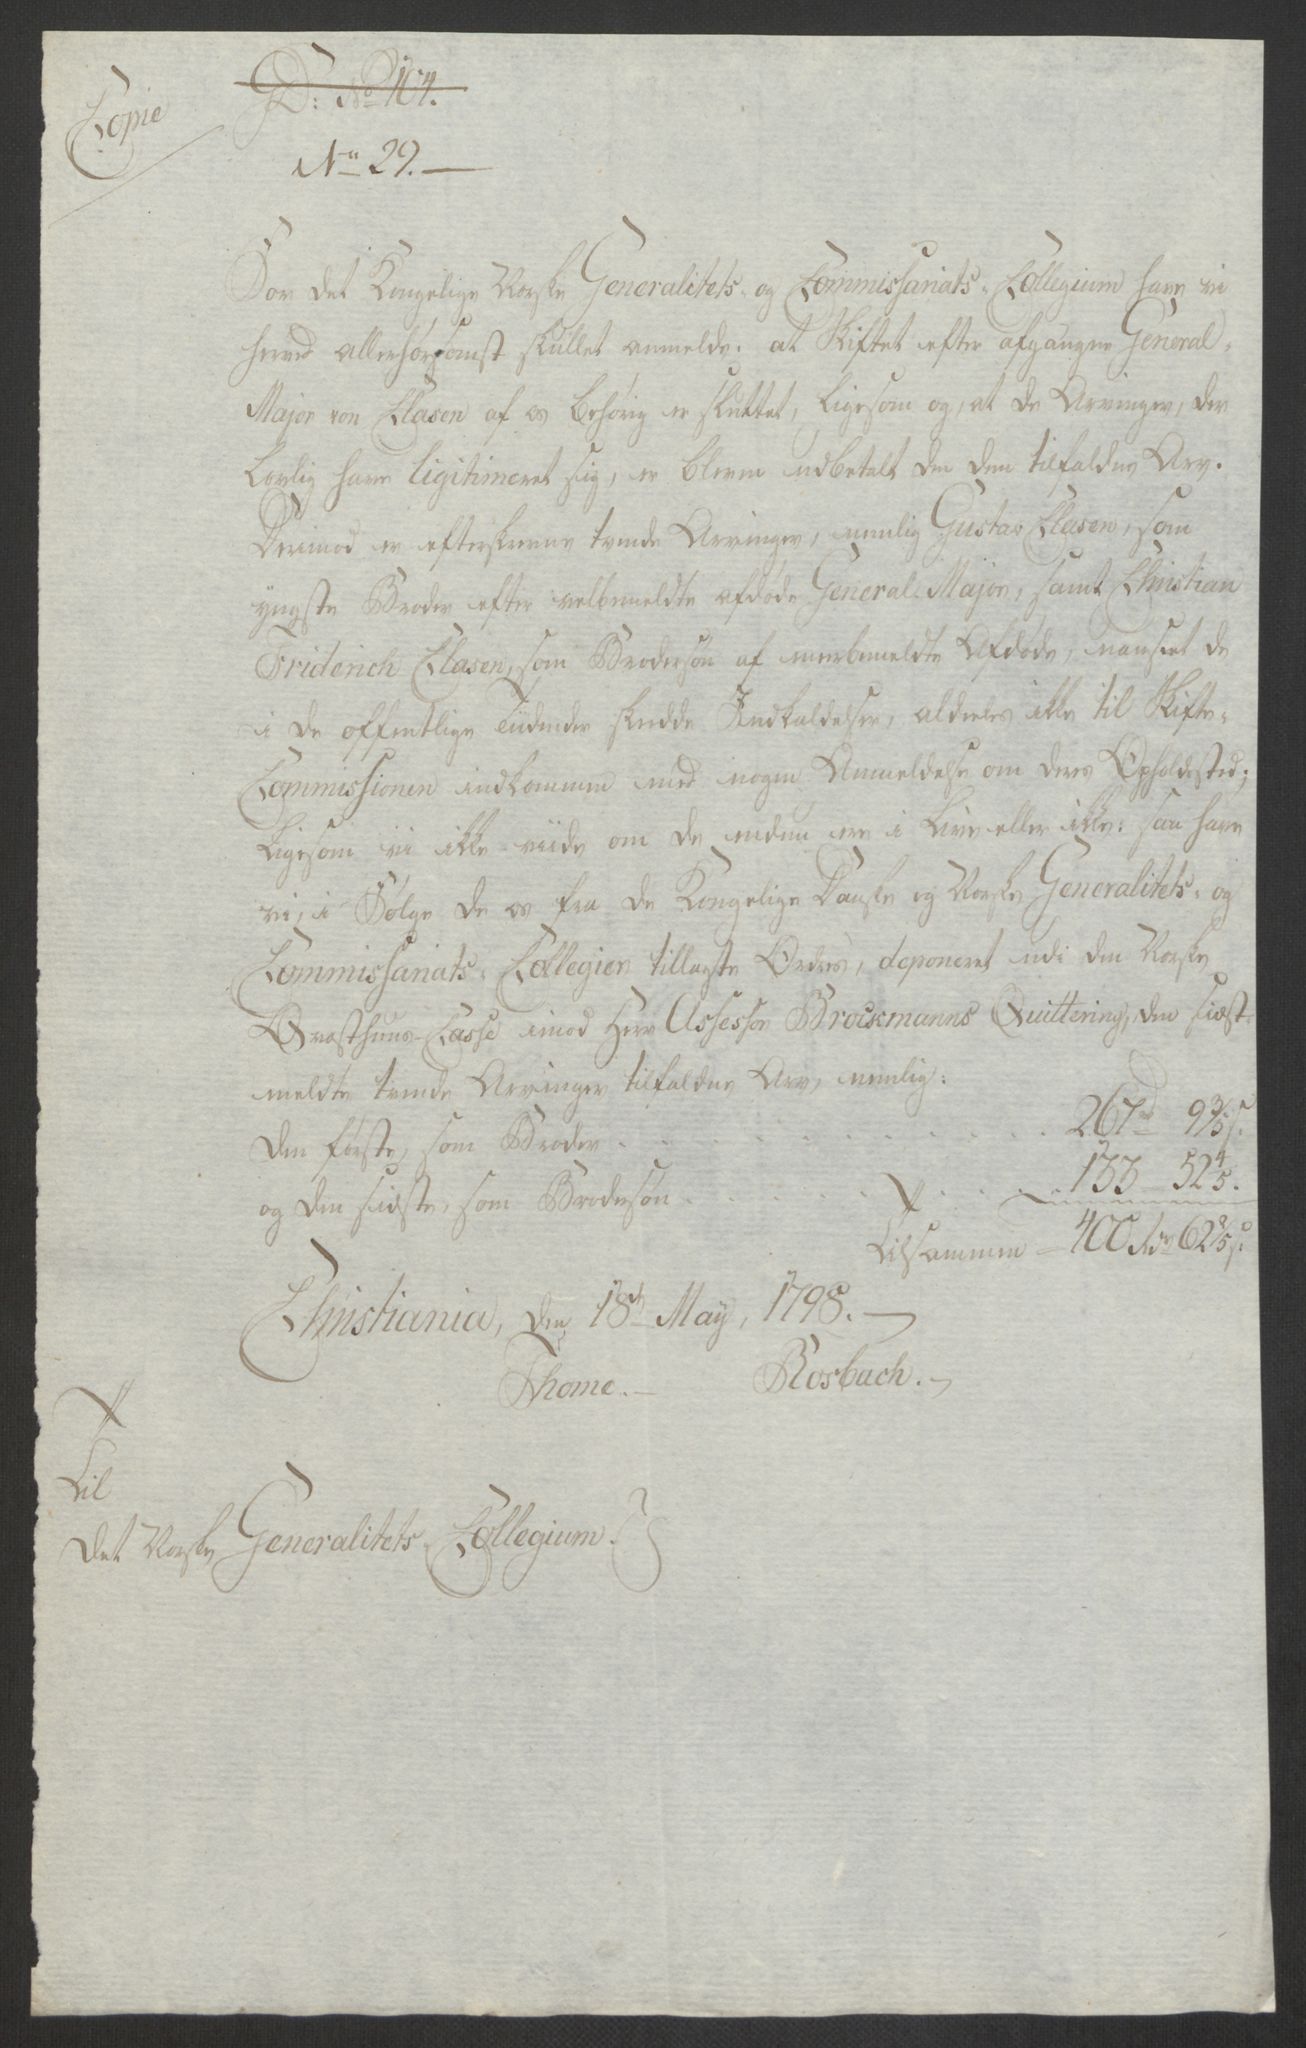 Copie
D: No 104.
No 29.
For det Kongelige Norske Generalitets- og Commissariats-Collegium have vi
herved allerhörsomst skullet anmelde: at Skiftet efter afgangne General-
Major von Clasen af os behörig er sluttet, ligesom og, at de Arvinger, der
lovlig have ligitimeret sig, er bleven udbetalt den dem tilfaldne Arv.
Derimod er efterskrevne tvende Arvinger, nemlig Gustav Clasen, som
yngste Broder efter velbemeldte afdöde General-Major, samt Christian
Friderich Clasen, som Brodersön af merbemeldte Afdöde, uanseet de
i de offentlige Tidender skeedde Indkaldelser, aldeeles ikke til Skifte-
Commissionen indkommen med nogen Anmeldelse om deres Opholdssted;
Ligesom vi ikke viide om de endnu ere i Live eller ikke: saa have
vi, i Fölge de os fra de Kongelige Danske og Norske Generalitets- og
Commissariats-Collegier tillagte Ordres, deponeret udi den Norske
Qvæsthuus-Casse imod Herr Assessor Brockmanns Quittering, den sidst-
meldte tvende Arvinger tilfaldne Arv, nemlig:
den förste, som Broder . . . 267 rd 9 3/5 s.
og den sidste, som Brodersön . . . 133 52 4/5.
Tilsammen 400 Rd 62 2/5 s.
Christiania, den 18d May, 1798.
Thome. Rosbach.
Til
det Norske Generalitets-Collegium.